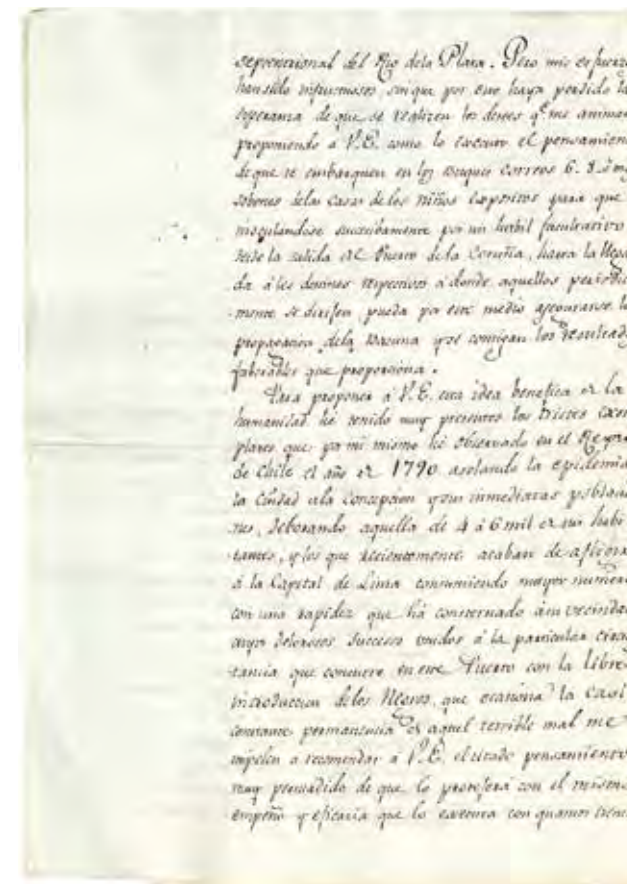 septentrional del Rio dela Plata. Pero mis esfuerzo
han sido infructuosos sin que por eso haya perdido la
esperanza de que se realizen los deseos q.e me animan
proponiendo á V.E. como lo executo el pensamien
de que se embarquen en los Buques Correos 6. 8. ó mas
Jobenes delas Casas de los Niños Expositos para que
inoculandose sucesibamente por un habil facultativo
desde la salida del Puerto dela Coruña, hasta la llega
da á los destinos respectivos á donde aquellos periodic
mente se dirijen pueda por este medio asegurarse la
propagacion dela Bacuna y se consigan los resultado
faborables que proporciona.
Para proponer á V.E. esta idea benefica de la
humanidad hé tenido muy presentes los tristes exem
plares que por mi mismo hé observado en el Reyno
de Chile el año de 1790 asolando la epidemia
la Ciudad dela Concepcion y sus inmediatas poblacio
nes, deborando aquella de 4 á 6 mil de sus habi
tantes, y los que recientemente acaban de afligir
á la Capital de Lima consumiendo mayor numero
con una rapidez que há consternado á su vecindar
cuyos dolorosos sucesos unidos á la particular circun
tancia que concurre en este Puerto con la libre
introduccion delos Negros, que ocasiona la casi
constante permanencia de aquel terrible mal me
impelen a recomendar á V.E. el citado pensamiento
muy persuadido de que lo protejerá con el mismo
empeño y eficacia que lo executa con quantos tienen